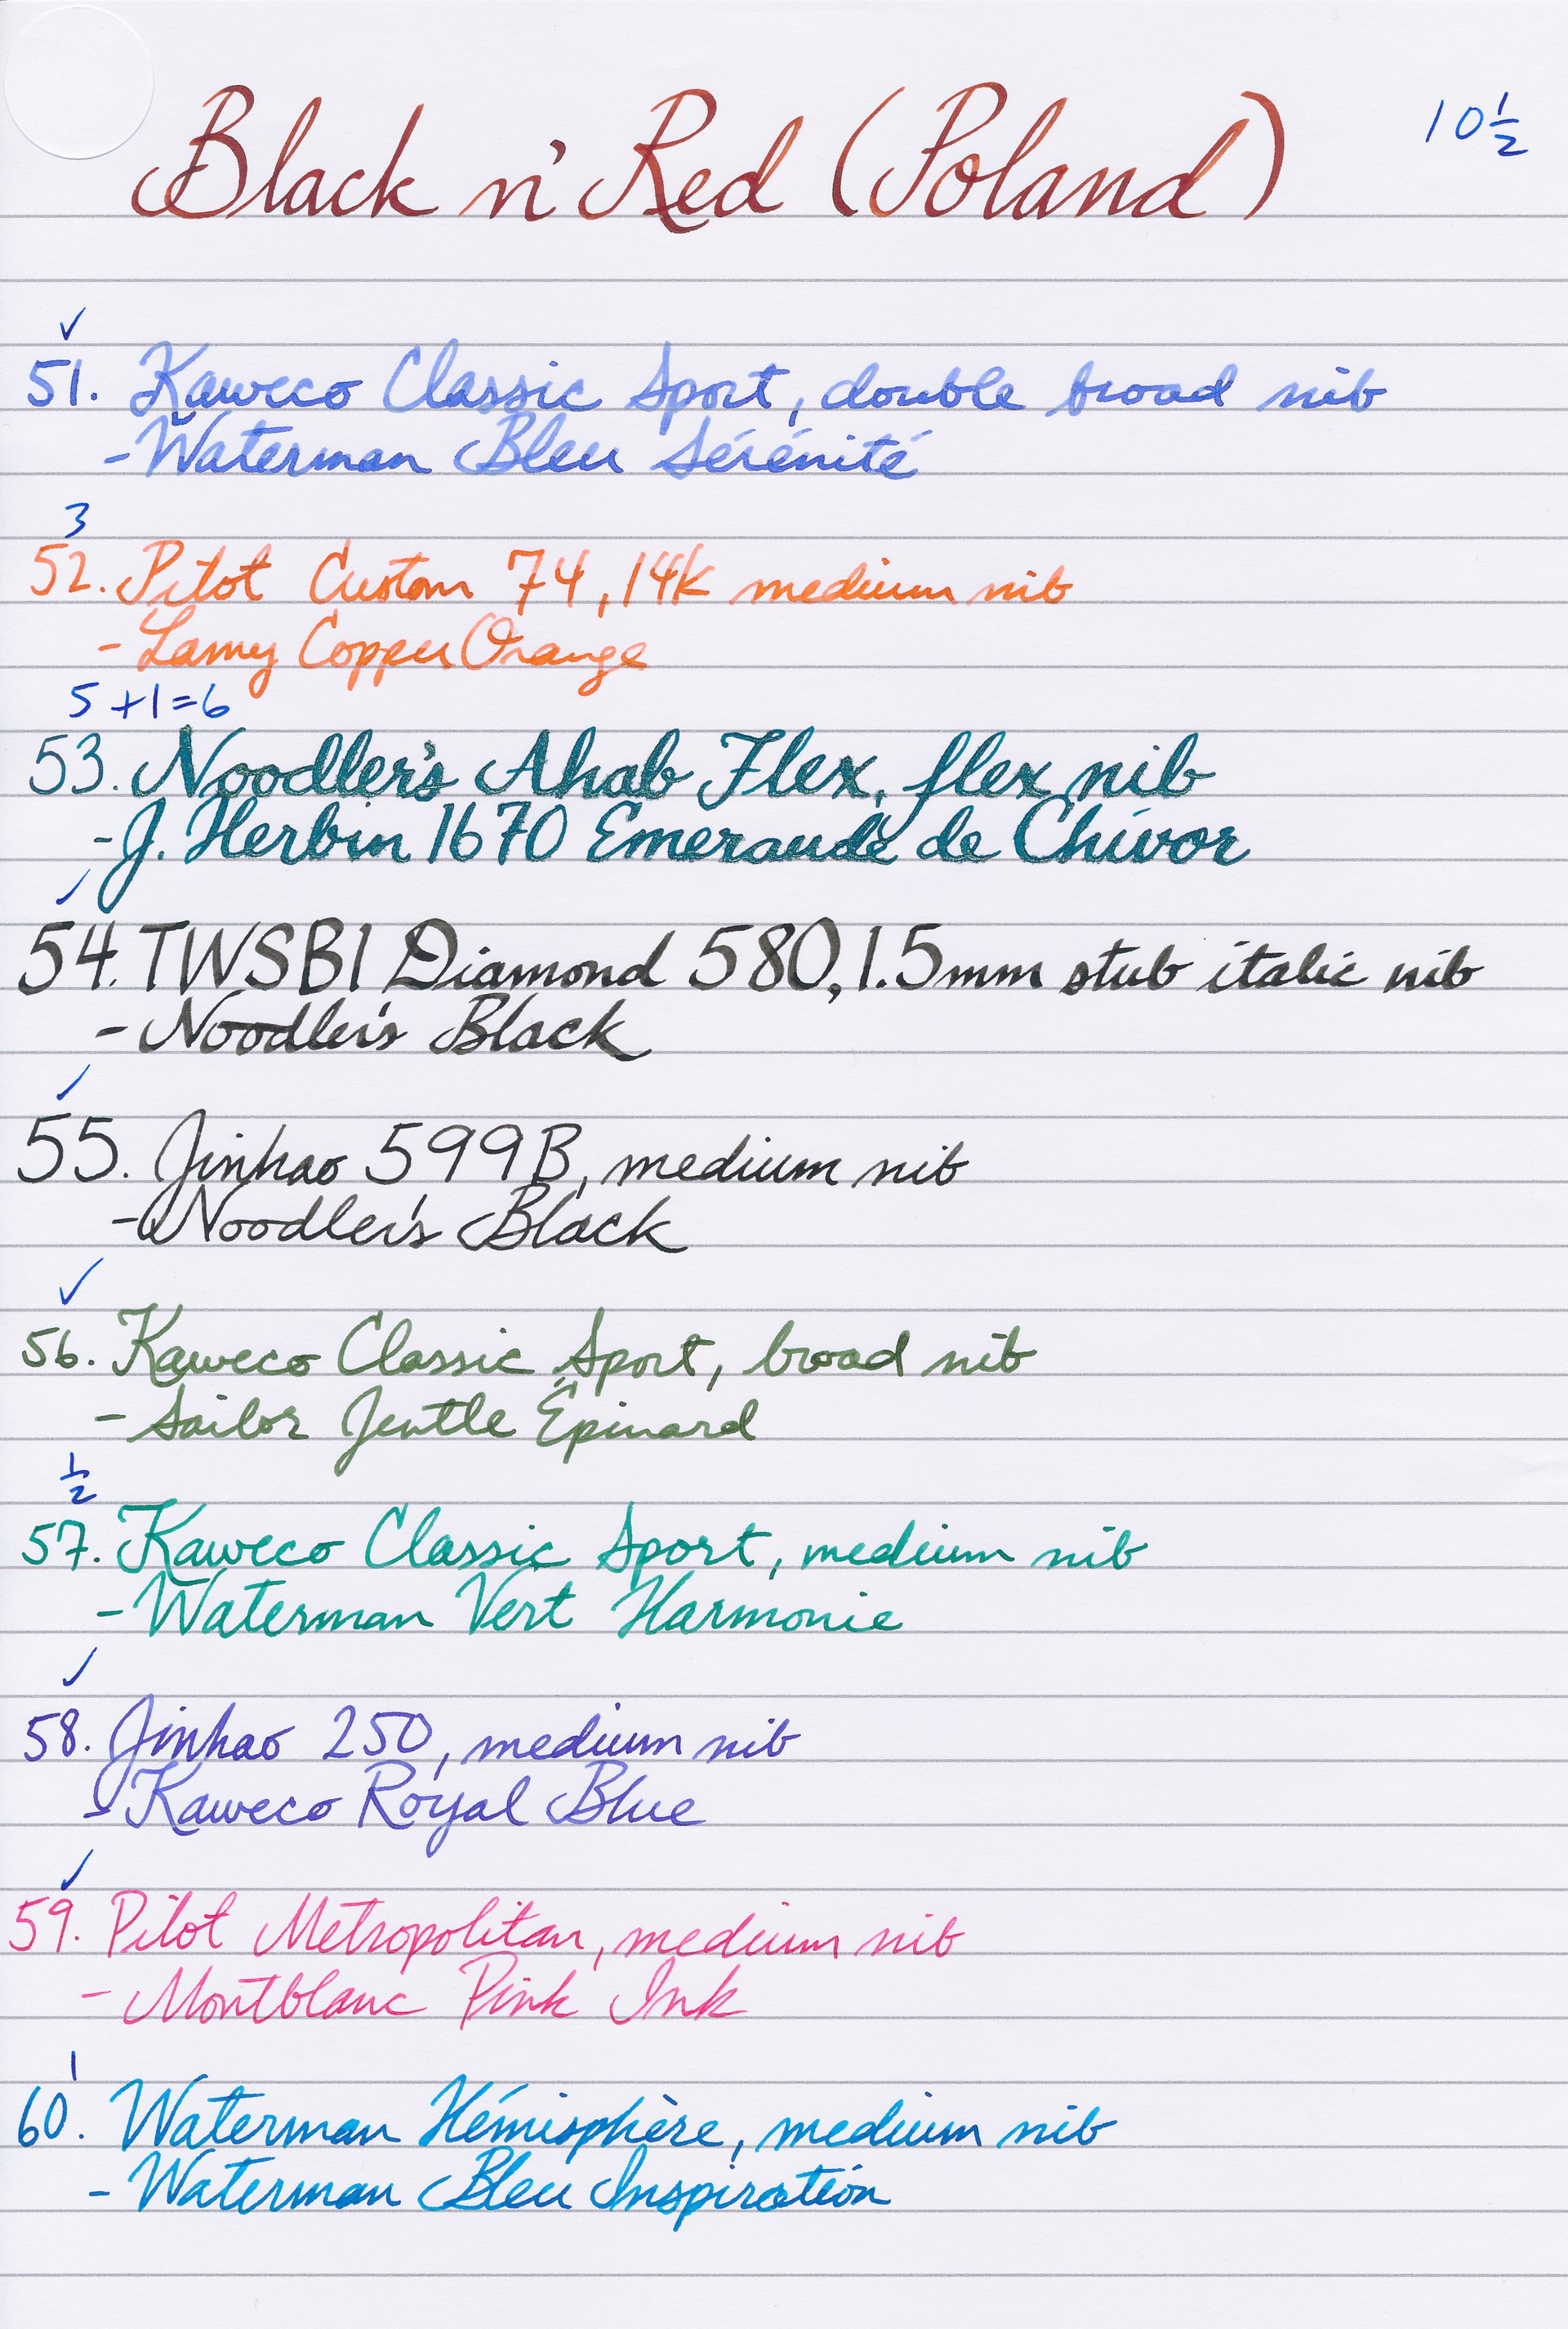 Black n' Red (Poland)
10 1/2
✓
51. Kaweco Classic Sport, double broad nib
- Waterman Bleu Sérénité
3
52. Pilot Custom 74, 14K medium nib
- Lamy Copper Orange
5 + 1 = 6
53. Noodler's Ahab Flex, flex nib
- J. Herbin 1670 Emeraude de Chivor
✓
54. TWSBI Diamond 580, 1.5mm stub italic nib
- Noodler's Black
✓
55. Jinhao 599B, medium nib
- Noodler's Black
✓
56. Kaweco Classic Sport, broad nib
- Sailor Jentle Épinard
1/2
57. Kaweco Classic Sport, medium nib
- Waterman Vert Harmonie
✓
58. Jinhao 250, medium nib
- Kaweco Royal Blue
✓
59. Pilot Metropolitan, medium nib
- Montblanc Pink Ink
1
60. Waterman Hémisphère, medium nib
- Waterman Bleu Inspiration